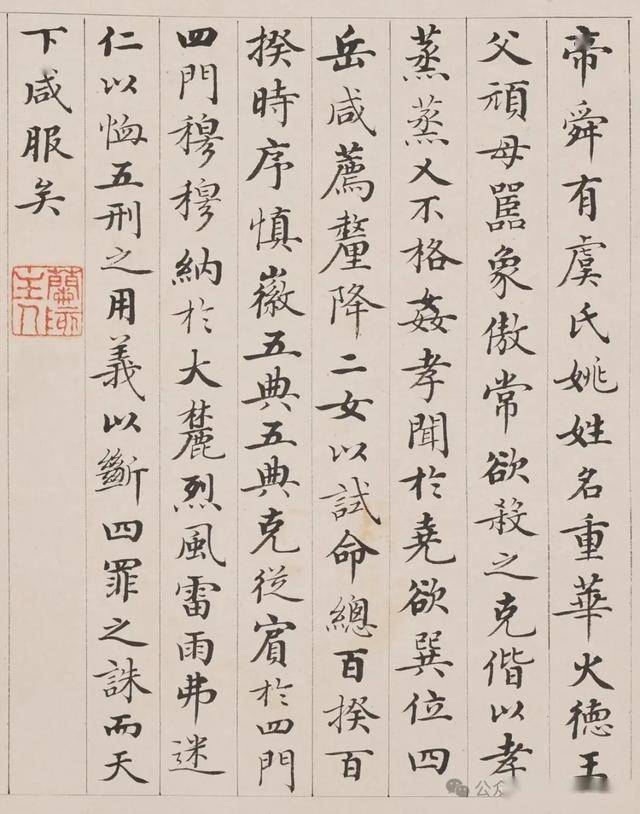 帝舜有虞氏姚姓名重華火德王
父頑母嚚象傲常欲殺之克偕以孝
蒸蒸乂不格姦孝聞於堯欲巽位四
岳咸薦釐降二女以試命總百揆百
揆時序慎徽五典五典克從賓於四門
四門穆穆納於大麓烈風雷雨弗迷
仁以恤五刑之用義以斷四罪之誅而天
下咸服矣
主人
公众